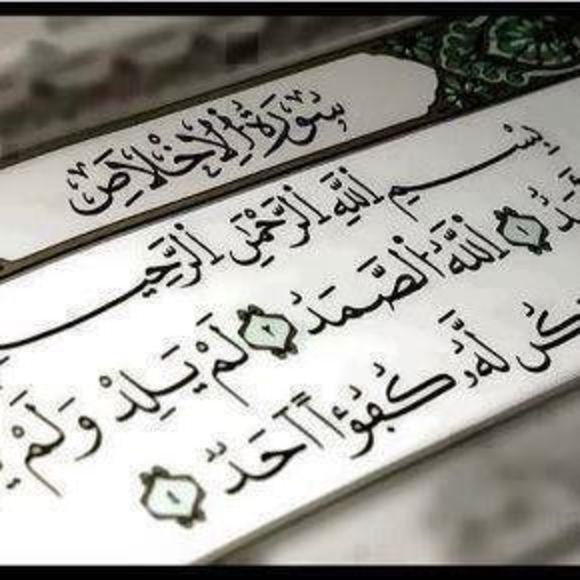 سُورَةُ الْإِخْلَاصِ
بِسْمِ اللَّهِ الرَّحْمَٰنِ الرَّحِيمِ
١ اللَّهُ الصَّمَدُ ٢ لَمْ يَلِدْ وَلَمْ
لَّهُ كُفُوًا أَحَدٌ